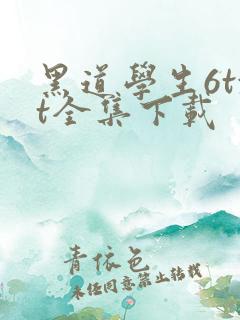 黑道學生6tx
t全集下載
青依色
未经同意禁止转载